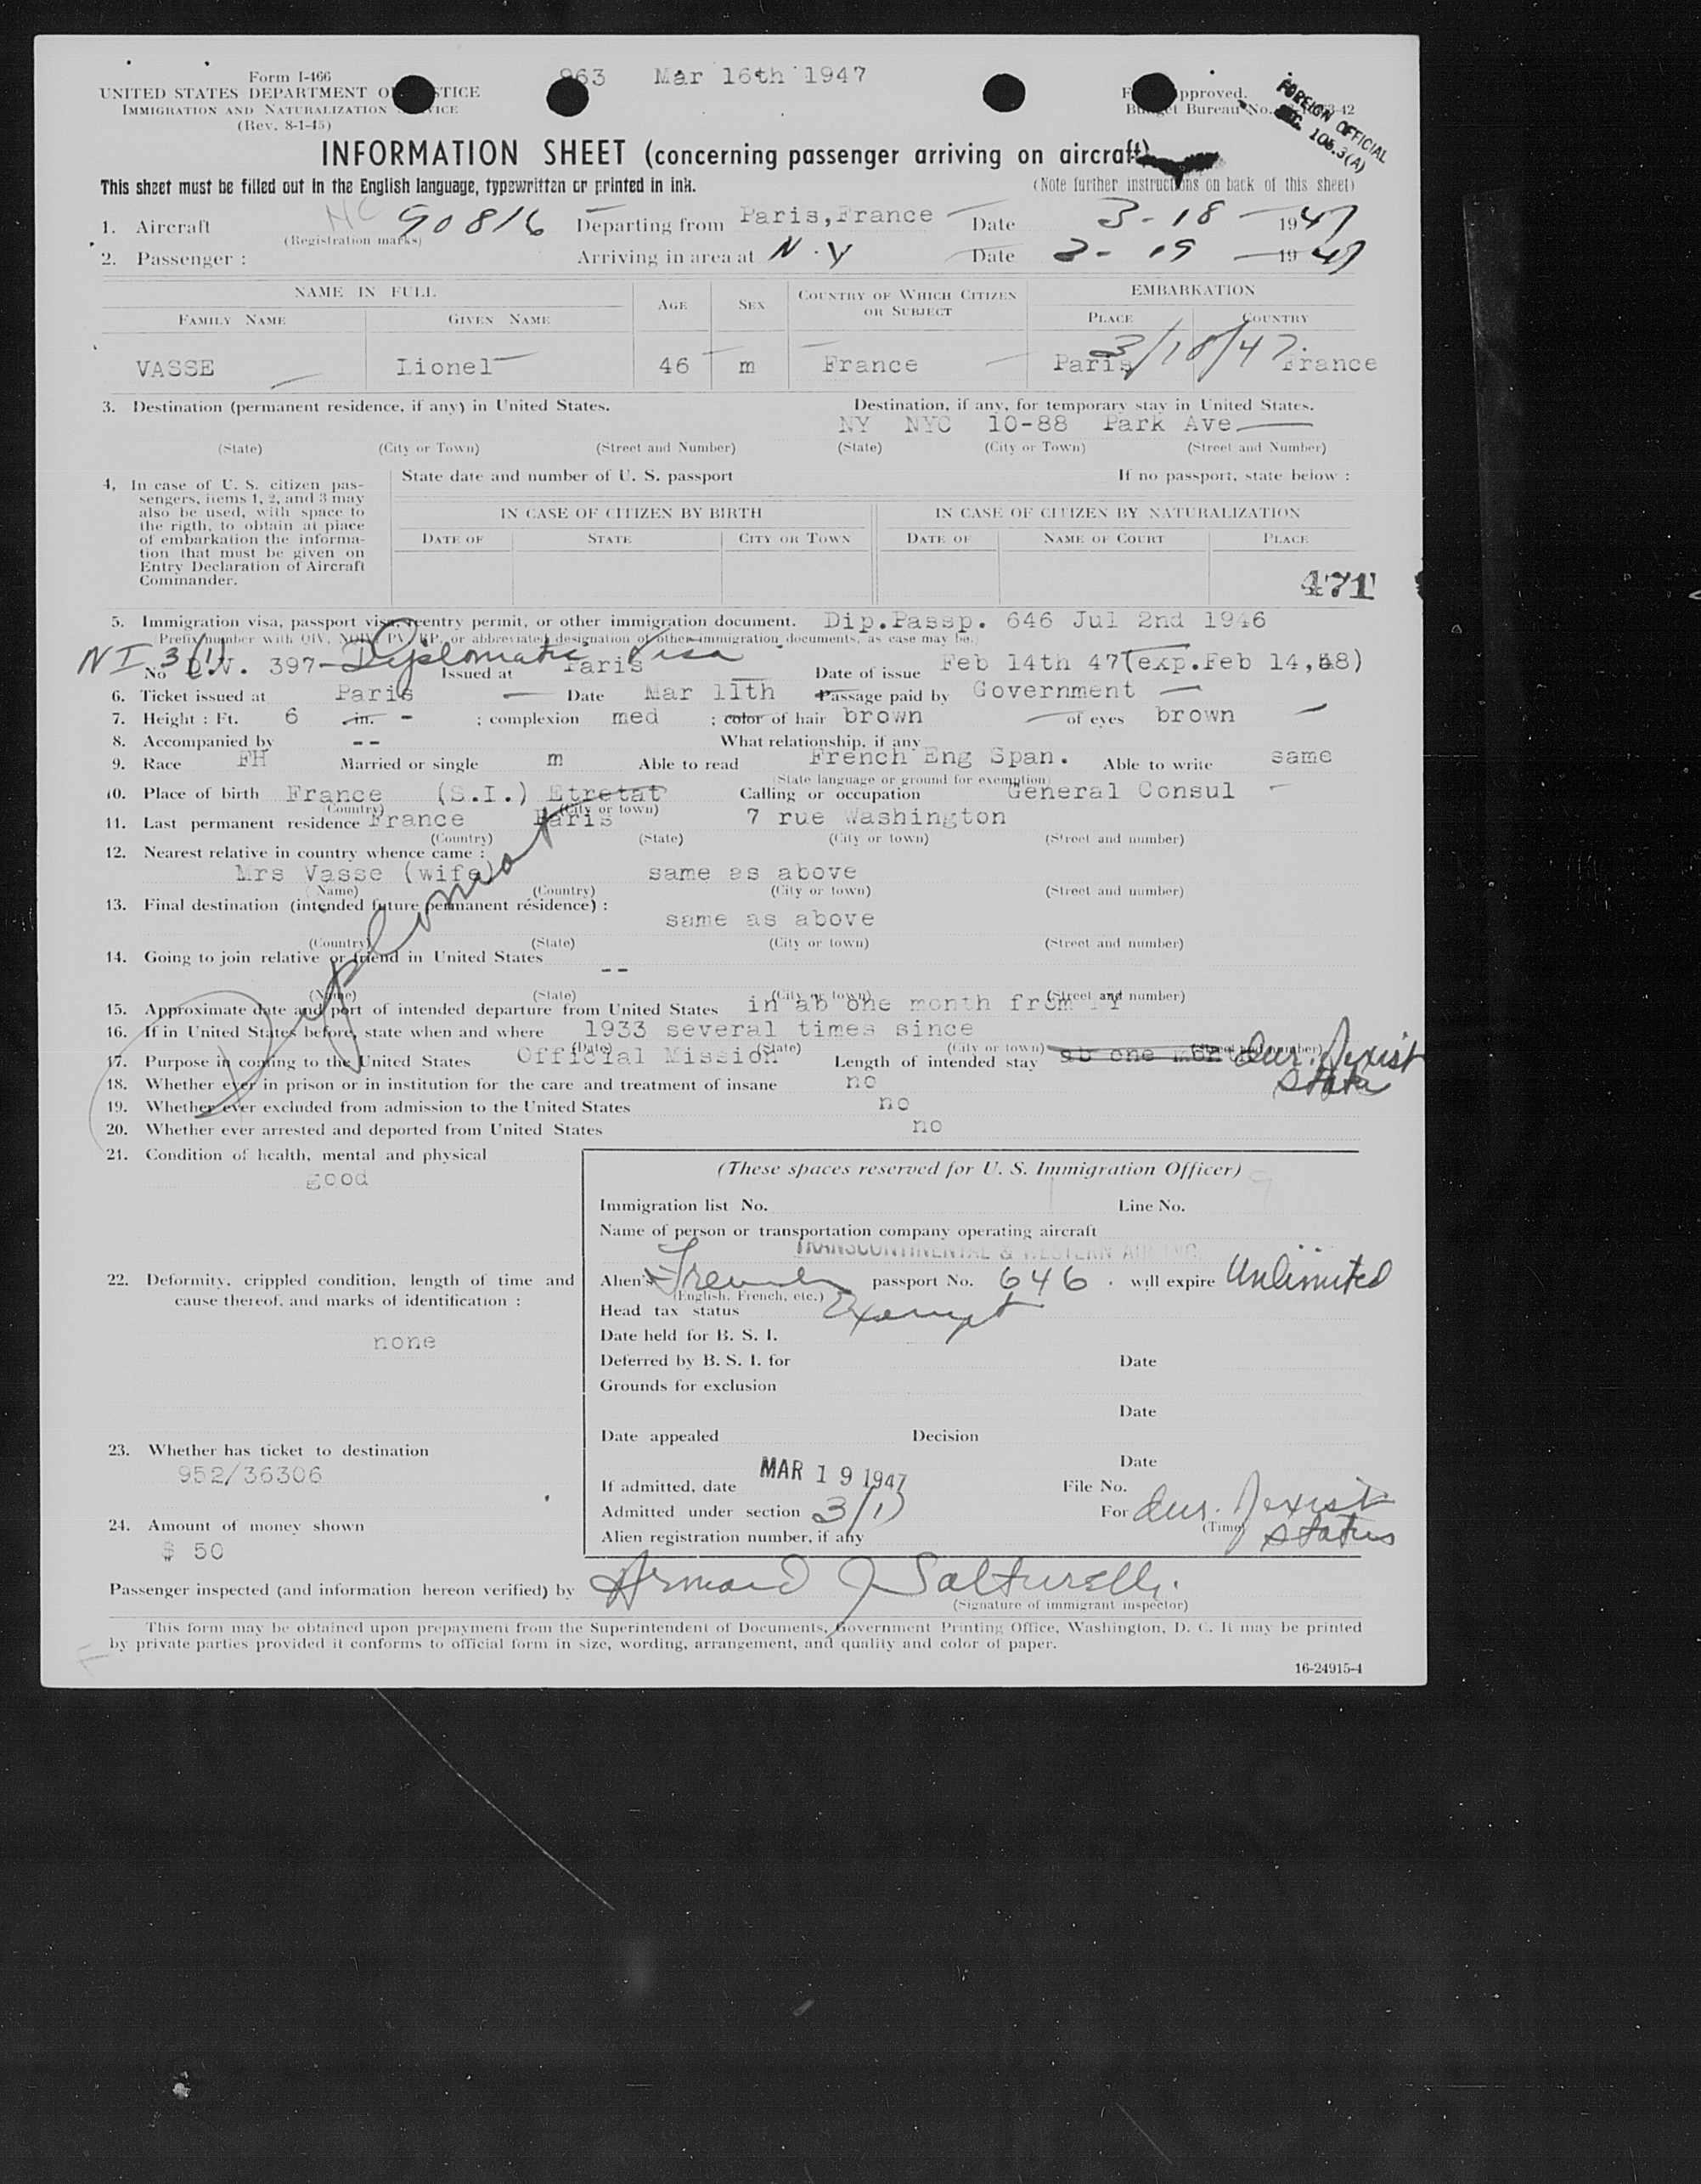 Form I-466
963 Mar 16th 1947
UNITED STATES DEPARTMENT OF JUSTICE
IMMIGRATION AND NATURALIZATION SERVICE
(Rev. 8-1-45)
Form Approved.
Budget Bureau No.
FOREIGN OFFICIAL
105.3(A)
INFORMATION SHEET (concerning passenger arriving on aircraft)
This sheet must be filled out in the English language, typewritten or printed in ink.
(Note further instructions on back of this sheet)
1. Aircraft NC 90816 Departing from Paris,France Date 3-18 1947
(Registration marks)
2. Passenger : Arriving in area at N.Y Date 3-19 1947
NAME IN FULL AGE SEX COUNTRY OF WHICH CITIZEN OR SUBJECT EMBARKATION
FAMILY NAME GIVEN NAME PLACE COUNTRY
3/18/47
VASSE Lionel 46 m France Paris France
3. Destination (permanent residence, if any) in United States. Destination, if any, for temporary stay in United States.
NY NYC 10-88 Park Ave
(State) (City or Town) (Street and Number) (State) (City or Town) (Street and Number)
4. In case of U. S. citizen pas-
sengers, items 1, 2, and 3 may
also be used, with space to
the rigth, to obtain at place
of embarkation the informa-
tion that must be given on
Entry Declaration of Aircraft
Commander.
State date and number of U. S. passport If no passport, state below :
IN CASE OF CITIZEN BY BIRTH IN CASE OF CITIZEN BY NATURALIZATION
DATE OF STATE CITY OR TOWN DATE OF NAME OF COURT PLACE
471
5. Immigration visa, passport visa, reentry permit, or other immigration document. Dip.Passp. 646 Jul 2nd 1946
Prefix number with QIV, NQIV, PV, RP, or abbreviated designation of other immigration documents, as case may be.
NI 3(1) Diplomatic Visa
No D.V. 397- Issued at Paris Date of issue Feb 14th 47(exp.Feb 14,48)
6. Ticket issued at Paris Date Mar 11th Passage paid by Government
7. Height : Ft. 6 in. - ; complexion med ; color of hair brown of eyes brown
8. Accompanied by -- What relationship, if any
9. Race FH Married or single m Able to read French Eng Span. Able to write same
(State language or ground for exemption)
10. Place of birth France (S.I.) Etretat Calling or occupation General Consul
(Country) (City or town)
11. Last permanent residence France Paris 7 rue Washington
(Country) (State) (City or town) (Street and number)
12. Nearest relative in country whence came :
Mrs Vasse (wife) same as above
(Name) (Country) (City or town) (Street and number)
13. Final destination (intended future permanent résidence) :
same as above
(Country) (State) (City or town) (Street and number)
14. Going to join relative or friend in United States
--
(Name) (State) (City or town) (Street and number)
Diplomat
15. Approximate date and port of intended departure from United States in ab one month from NY
16. If in United States before, state when and where 1933 several times since
(Date) (State) (City or town) (Street and number)
17. Purpose in coming to the United States Official Mission Length of intended stay ab one mon dur.
18. Whether ever in prison or in institution for the care and treatment of insane no
19. Whether ever excluded from admission to the United States no
20. Whether ever arrested and deported from United States no
21. Condition of health, mental and physical
good
(These spaces reserved for U. S. Immigration Officer)
Immigration list No. Line No. 9
Name of person or transportation company operating aircraft
TRANSCONTINENTAL & WESTERN AIR INC.
22. Deformity, crippled condition, length of time and
cause thereof, and marks of identification :
none
Alien's French passport No. 646 . will expire Unlimited
(English, French, etc.)
Head tax status Exempt
Date held for B. S. I.
Deferred by B. S. I. for Date
Grounds for exclusion
Date
Date appealed Decision
23. Whether has ticket to destination
952/36306
Date
If admitted, date MAR 19 1947 File No.
Admitted under section 3(1) For dur. status
(Time)
Alien registration number, if any
24. Amount of money shown
$ 50
Passenger inspected (and information hereon verified) by Armand J Salturelli
(Signature of immigrant inspector)
This form may be obtained upon prepayment from the Superintendent of Documents, Government Printing Office, Washington, D. C. It may be printed
by private parties provided it conforms to official form in size, wording, arrangement, and quality and color of paper.
16-24915-4